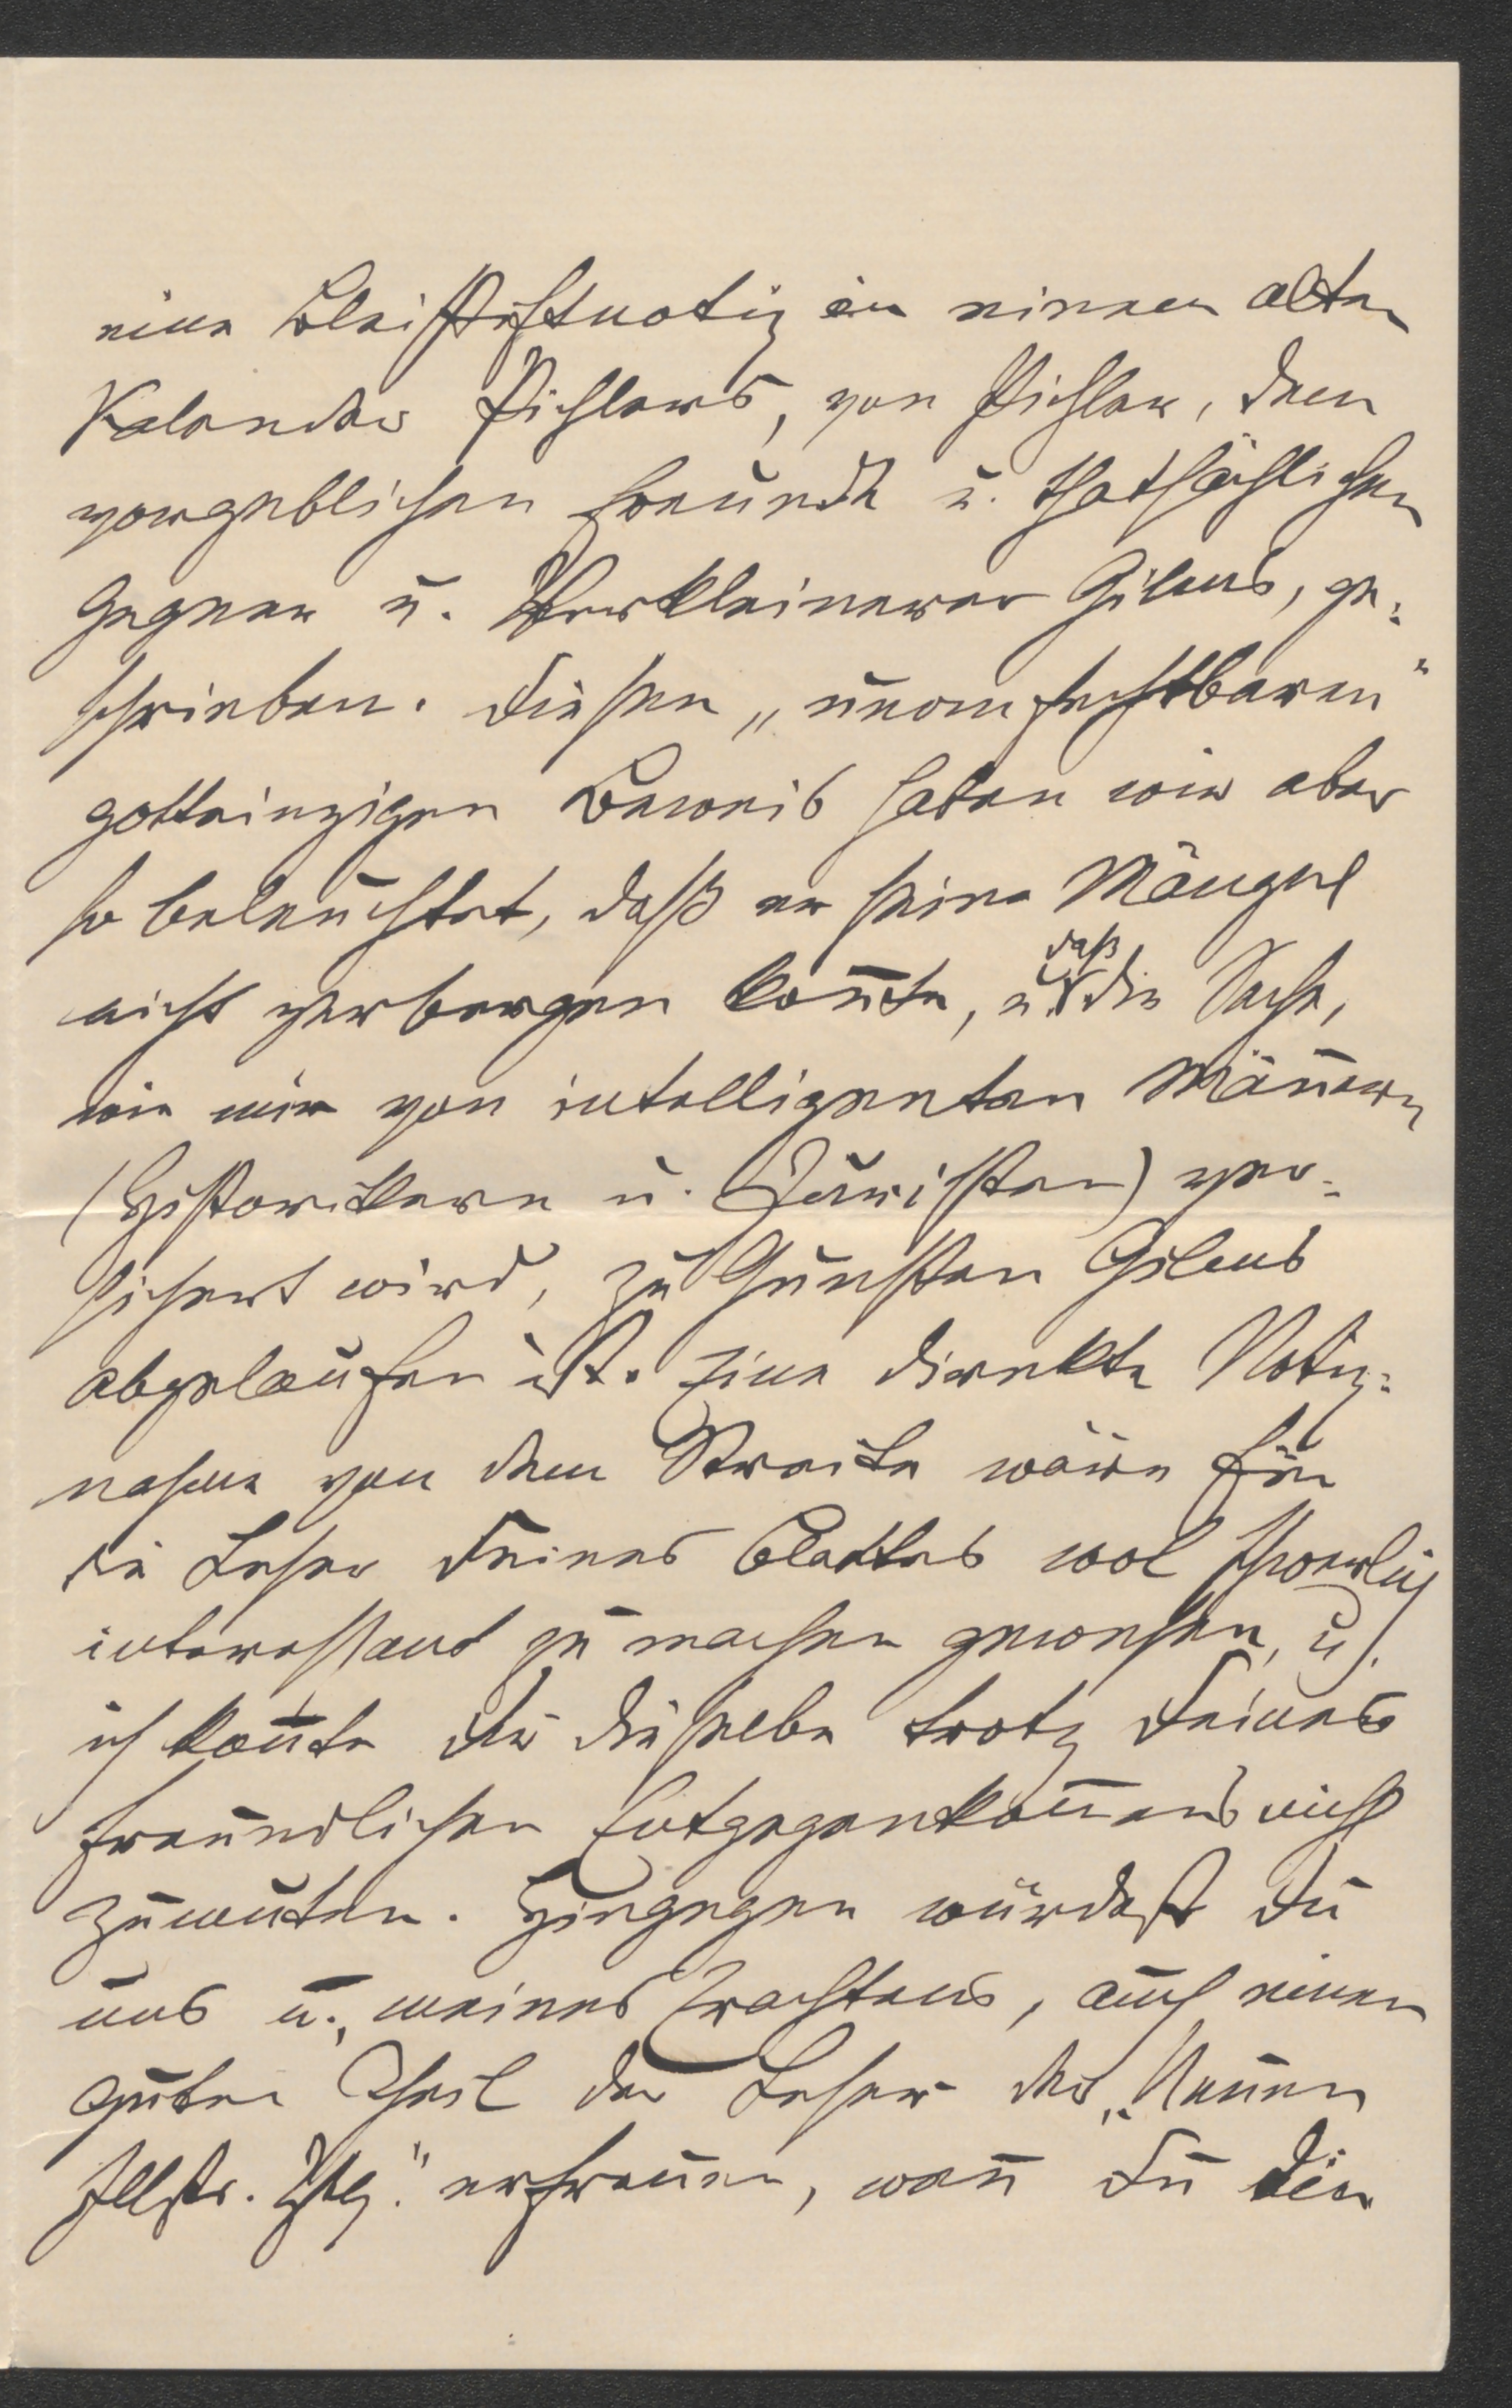 eine Bleistiftnotiz in einem alten
Kalender Pichlers, von Pichler, dem
vorgeblichen Freunde u. thatsächlichen
Gegner u. Verkleinerer Gilms, ge-
schrieben. Diesen „unanfechtbaren"
gotteinzigen Beweis haben wir aber
so beleuchtet, daß er seine Mängel
nicht verbergen kon̄te, u. daß die Sache,
wie mir von intelligenten Män̄ern
(Historikern u. Juristen) ver-
sichert wird, zu Gunsten Gilms
abgelaufen ist. Eine direkte Notiz-
nahme von dem Streite wäre für
die Leser Deines Blattes wol schwerlich
interessant zu machen gewesen, u.
ich kon̄te dir dieselbe trotz Deines
freundlichen Entgegenkom̄ens nicht
zumuten. Hingegen würdest Du
uns u., meines Erachtens, auch einen
guten Theil der Leser der „Neuen
Illstr. Ztg." erfreuen, wen̄ Du die